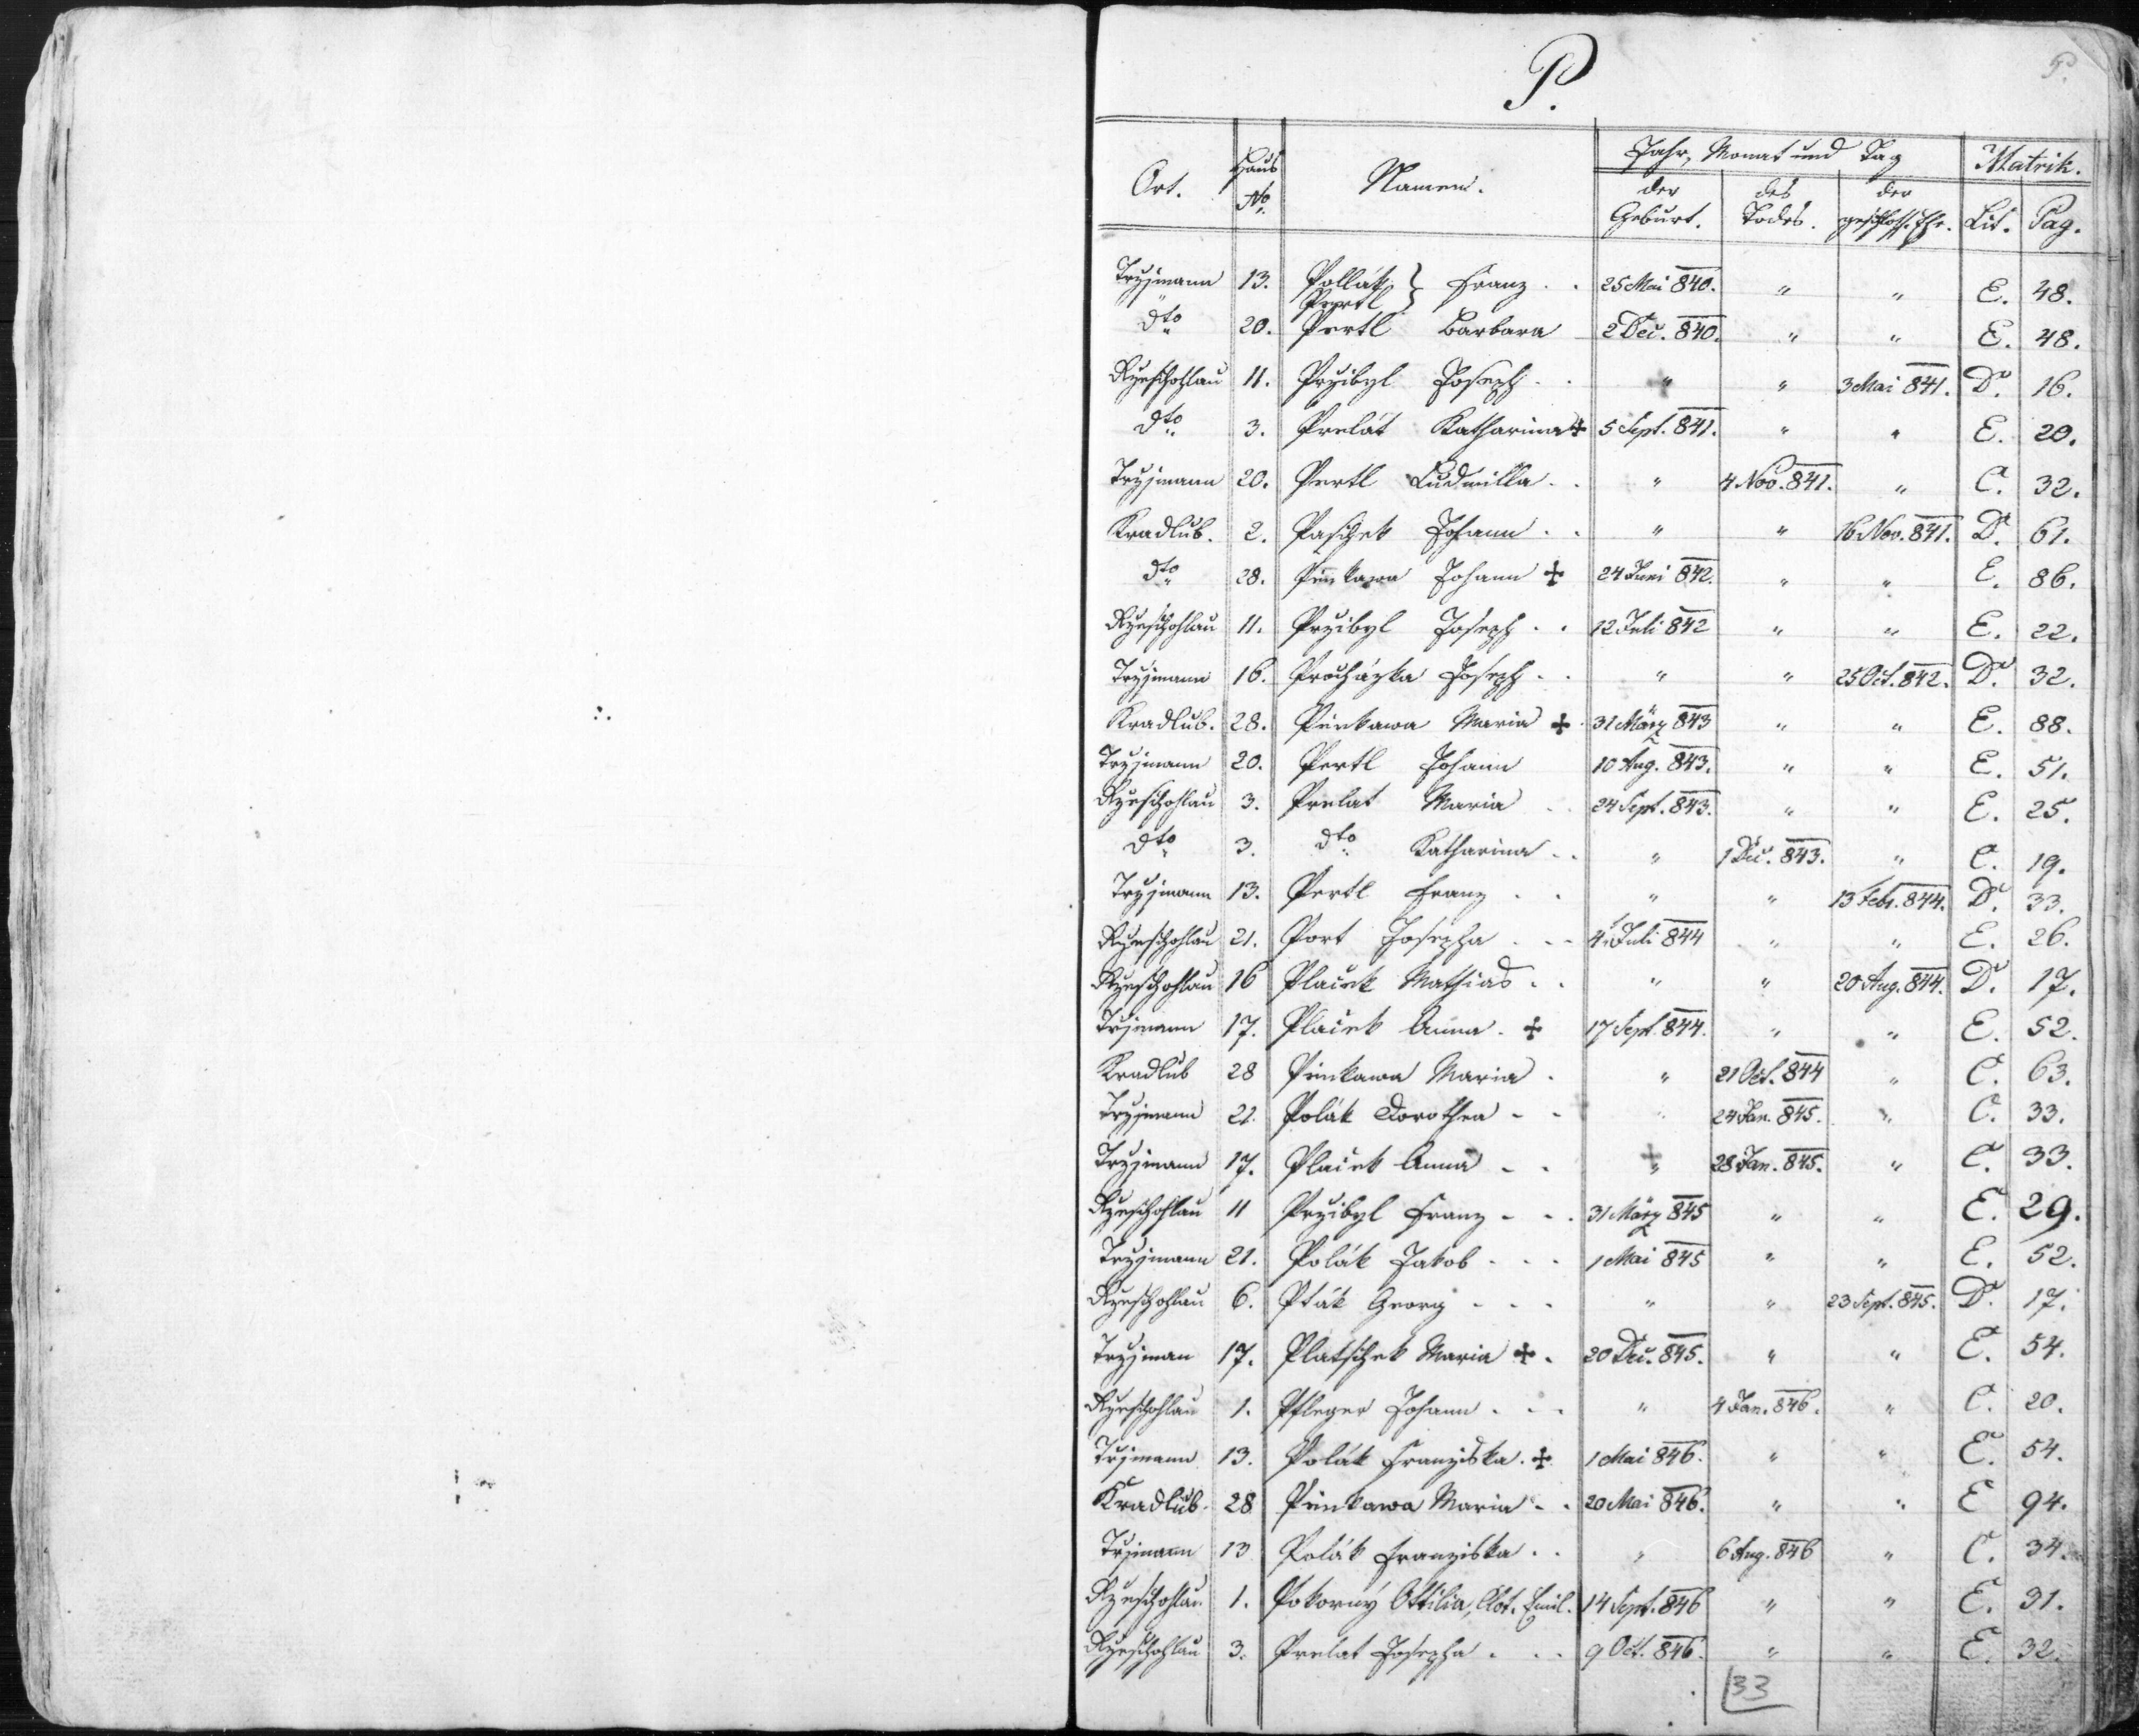 P.
Ort. Haus No. Namen. Jahr, Monat und Tag Matrik.
der Geburt. des Todes. der geschloss. Ehe. Lit. Pag.
Trzjmann 13. Pollák } Franz . . 25 Mai 840. " " E. 48.
Pertl
dto 20. Pertl Barbara 2 Dec. 840. " " E. 48.
Rzeschohlau 11. Przibyl Joseph . . " " 3 Mai 841. D. 16.
dto 3. Prelát Katharina ✝ 5 Sept. 841. " " E. 20.
Trzjmann 20. Pertl Ludmilla . . " 4 Nov. 841. " C. 32.
Kradlub. 2. Paschek Johann . . " " 16 Nov. 841. D. 61.
dto 28. Pinkawa Johann ✝ 24 Juni 842. " " E. 86.
Rzeschohlau 11. Przibyl Joseph . . 12 Juli 842 " " E. 22.
Trzjmann 16. Procházka Joseph . . " " 25 Oct. 842. D. 32.
Kradlub. 28. Pinkawa Maria ✝ 31 März 843 " " E. 88.
Trzjmann 20. Pertl Johann 10 Aug. 843. " " E. 51.
Rzeschohlau 3. Prelat Maria . . 24 Sept. 843. " " E. 25.
dto 3. dto Katharina . . " 1 Dec. 843. " C. 19.
Trzjmann 13. Pertl Franz . . " " 13 Feb. 844. D. 33.
Rzeschohlau 21. Port Josepha . . . 4 Juli 844 " " E. 26.
Rzeschohlau 16 Plaček Mathias . . " " 20 Aug. 844. D. 17.
Trzjmann 17. Plaček Anna . ✝ 17 Sept. 844. " " E. 52.
Kradlub 28 Pinkawa Maria . " 21 Oct. 844 " C. 63.
Trzjmann 21. Polák Dorothea - - " 24 Jan. 845. " C. 33.
Trzjmann 17. Plaček Anna . . " 28 Jan. 845. " C. 33.
Rzeschohlau 11 Przibyl Franz - - . 31 März 845 " " E. 29.
Trzjmann 21. Polák Jakob . . . 1 Mai 845 " " E. 52.
Rzeschohlau 6. Pták Georg - - . " " 23 Sept. 845. D. 17.
Trzjman 17. Platschek Maria ✝ . 20 Dec. 845. " " E. 54.
Rzeschohlau 1. Pfleger Johann . . . " 4 Jan. 846. " C. 20.
Trzjmann 13. Polák Franziska . ✝ 1 Mai 846. " " E. 54.
Kradlub. 28 Pinkawa Maria . . 20 Mai 846. " " E 94.
Trzjmann 13 Polák Franziska . . " 6 Aug. 846 " C. 34.
Rzeschohlau 1. Pokorný Ottilia, Clot. Emil. 14 Sept. 846 " " E. 31.
Rzeschohlau 3. Prelat Josepha . . . 9 Oct. 846. " " E. 32.
33